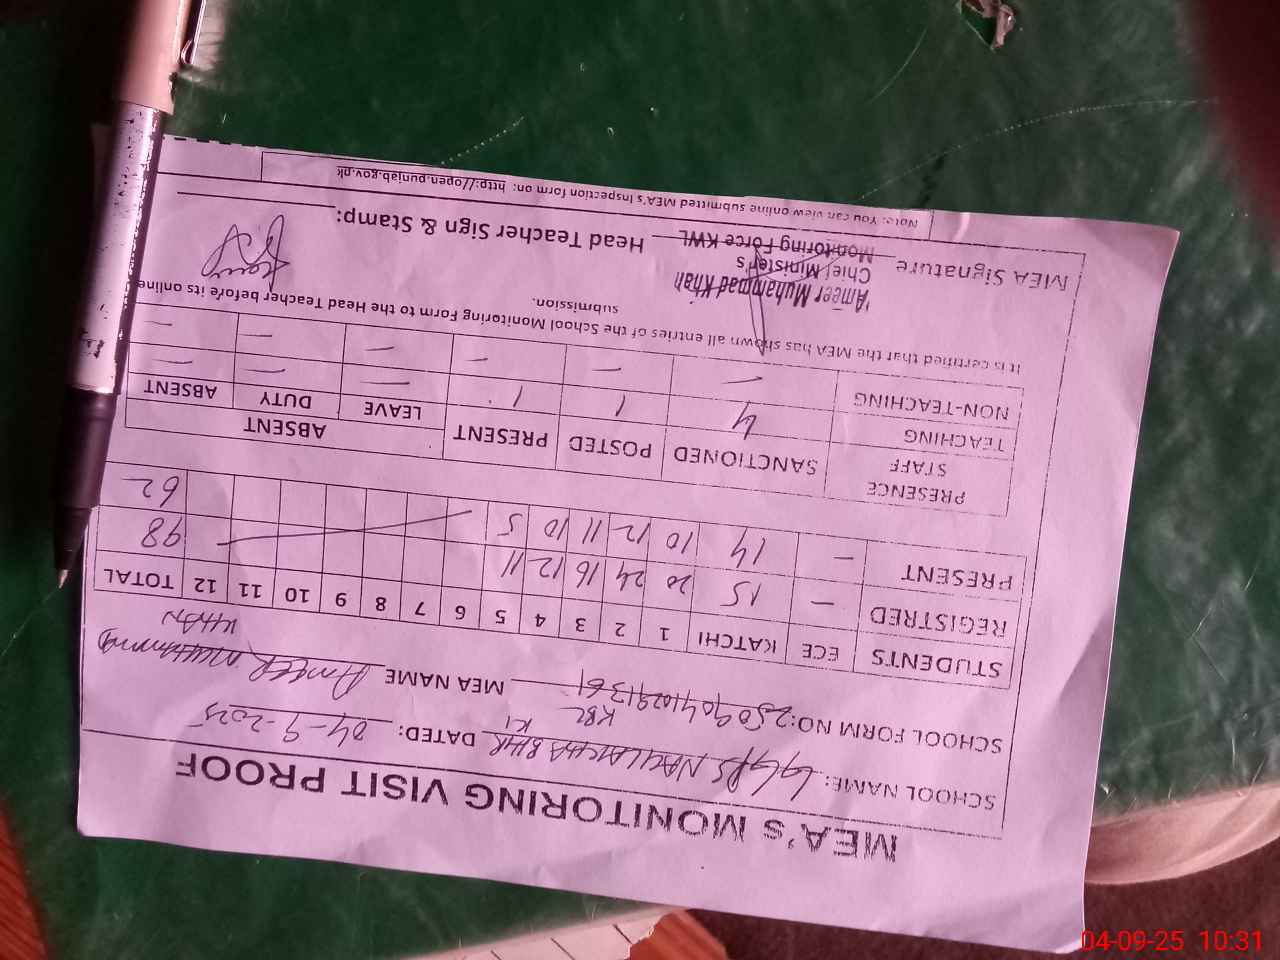 MEA's MONITORING VISIT PROOF
SCHOOL NAME: GGPS DATED: 04-9-2025
SCHOOL FORM NO: MEA NAME AMEER MUHAMMAD KHAN
STUDENTS ECE KATCHI 1 2 3 4 5 6 7 8 9 10 11 12 TOTAL
REGISTRED — 15 20 24 16 12 11 98
PRESENT — 14 10 12 11 10 5 62
PRESENCE STAFF SANCTIONED POSTED PRESENT ABSENT
LEAVE DUTY ABSENT
TEACHING 4 1 1 — — —
NON-TEACHING — — — — — —
It is certified that the MEA has shown all entries of the School Monitoring Form to the Head Teacher before its online
submission.
Ameer Muhammad Khan
Chief Minister's
Monitoring Force KWL
MEA Signature Head Teacher Sign & Stamp:
Note: You can view online submitted MEA's Inspection form on: http://open.punjab.gov.pk
04-09-25 10:31